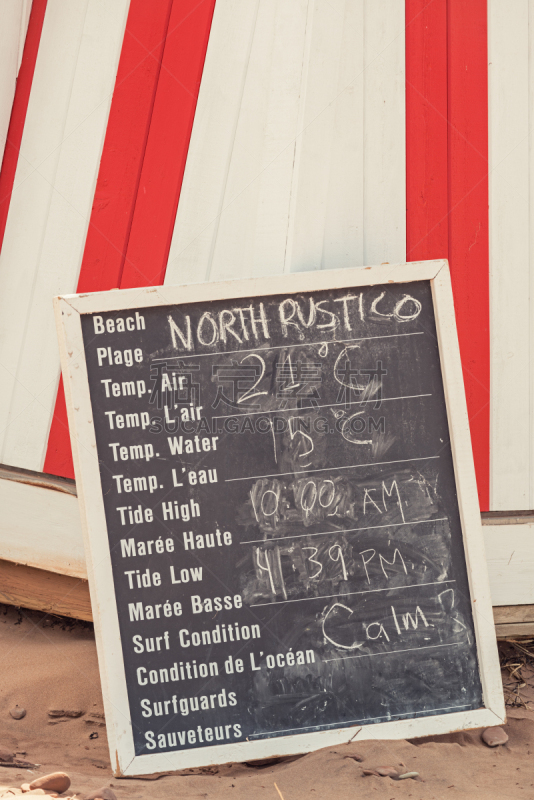 Beach NORTH RUSTICO
Plage
Temp. Air 21°C
Temp. L'air
Temp. Water 15°C
Temp. L'eau
Tide High 10:00 AM
Marée Haute
Tide Low 4:39 PM
Marée Basse
Surf Condition Calm
Condition de L'océan
Surfguards
Sauveteurs
稿定设计
SUCAI.GAODING.COM